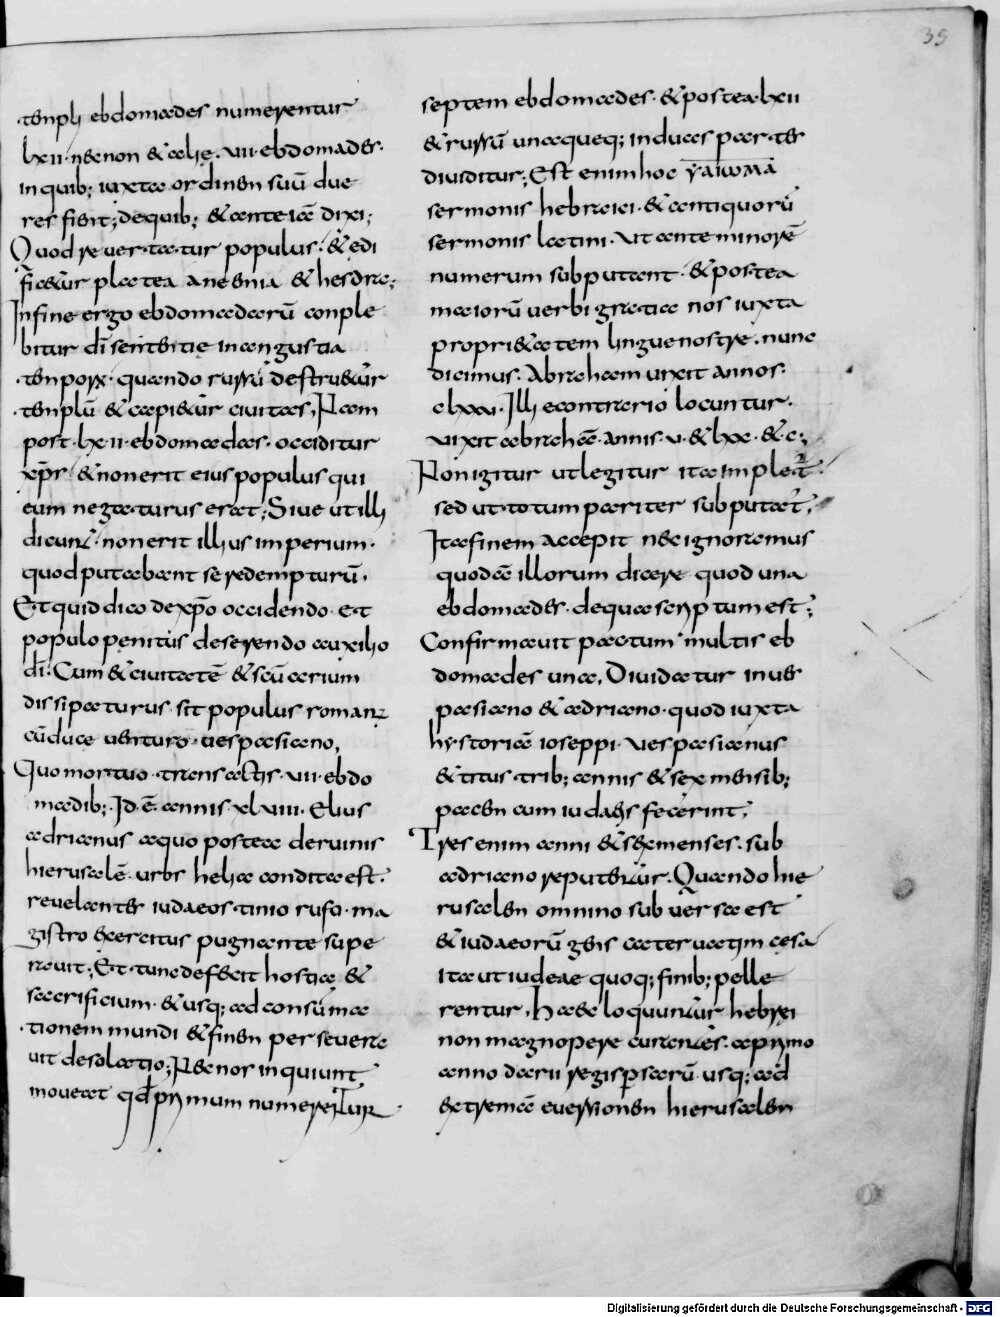 35
templi ebdomades numerentur
lxii · necnon & alie · vii · ebdomades ·
in quib; iuxta ordinem suū due
res fient; de quib; & ante iā dixi;
Quod revertatur populus · & edi
ficetur platea anemia & hesdra;
In fine ergo ebdomadarū conple
bitur di sententie in angustia
temporum · quando rursū destruetur
templū & capietur civitas, Nam
post · lx · ii · ebdomadas · occiditur
xp̄s · & non erit eius populus qui
eum negaturus erat; Sive ut illi
dicunt · non erit illius imperium ·
quod putabant se redempturū,
Et quid dico de xpo occidendo · et
populo penitus deserendo auxilio
di · Cum & civitatē & scūarium
dissipaturus sit populus roman
cū duce venturo · vespasiano,
Quo mortuo · transactis · vii · ebdo
madib; · Id · ē · annis · xl · viiii · Elius
adrianus a quo postea de ruinis
hierusalē · urbs helia condita est ·
revelanter iudaeos · tinio rufo · ma
gistro exercitus pugnante supe
ravit; Et tunc defecit hostia &
sacrificium · & usq; ad consūma
tionem mundi & finem persevera
vit desolatio; Nec nos inquiunt
moveat qd primum numerentur
septem ebdomades · & postea · lxii
& rursū unaqueq; in duas partes
dividitur; Est enim hoc ΥΔΙΩΜΑ
sermonis hebraici · & antiquorū
sermonis latini · ut ante minorē
numerum subputent · & postea
maiorū verbi gratia nos iuxta
proprietatem lingue nostre · nunc
dicimus · Abraham vixit annos ·
clxxv · Illi econtrario locuntur ·
vixit abrahā · annis · v · & lxx · & c;
Non igitur ut legitur ita impleat
sed ut totum pariter subputat,
Ita finem accepit nec ignoramus
quodā illorum dicere quod una
ebdomades · de qua scriptum est;
Confirmavit pactum multis eb
domades una, Dividatur in ves
pasiano & adriano · quod iuxta
hystoriā ioseppi · vespasianus
& titus trib; annis & sex mensib;
pacem cum iudaeis fecerint;
Tres enim anni & sex menses · sub
adriano reputentur · Quando hie
rusalem omnino subversa est
& iudaeorū gens catervatim cesa
ita ut iudeae quoq; finib; pelle
rentur, Haec loquuntur hebrei
non magnopere curantes · a primo
anno darii regis persarū · usq; ad
extremā eversionem hierusalem
Digitalisierung gefördert durch die Deutsche Forschungsgemeinschaft - DFG